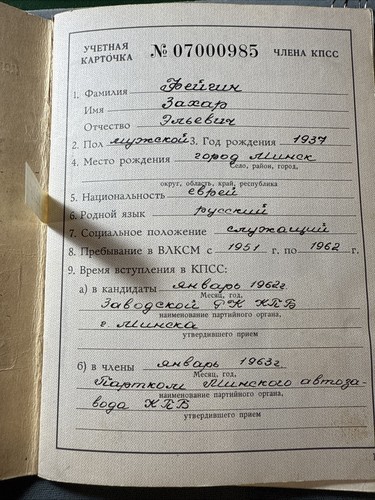 УЧЕТНАЯ КАРТОЧКА № 07000985 ЧЛЕНА КПСС
1. Фамилия Фейгин
Имя Захар
Отчество Эльевич
2. Пол мужской 3. Год рождения 1937
4. Место рождения город Минск
Село, район, город,
округ, область, край, республика
5. Национальность еврей
6. Родной язык русский
7. Социальное положение служащий
8. Пребывание в ВЛКСМ с 1951 г. по 1962 г.
9. Время вступления в КПСС:
а) в кандидаты январь 1962г.
Месяц, год,
Заводской РК КПБ
наименование партийного органа,
г. Минска
утвердившего прием
б) в члены январь 1963г.
Месяц, год,
Партком Минского автоза-
наименование партийного органа,
вода КПБ
утвердившего прием